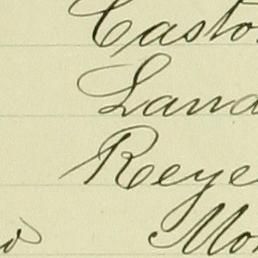 Casto
Land
Reye
Mo